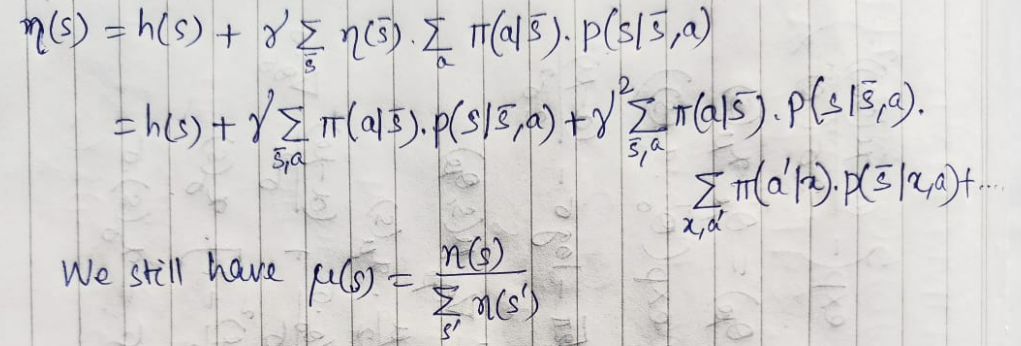 η(s) = h(s) + γ Σ_s̄ η(s̄). Σ_a π(a|s̄). p(s|s̄,a)
= h(s) + γ Σ_s̄,a π(a|s̄). p(s|s̄,a) + γ² Σ_s̄,a π(a|s̄). p(s|s̄,a).
Σ_x,a' π(a'|x). p(s̄|x,a) + ...
We still have μ(s) = η(s) / Σ_s' η(s')